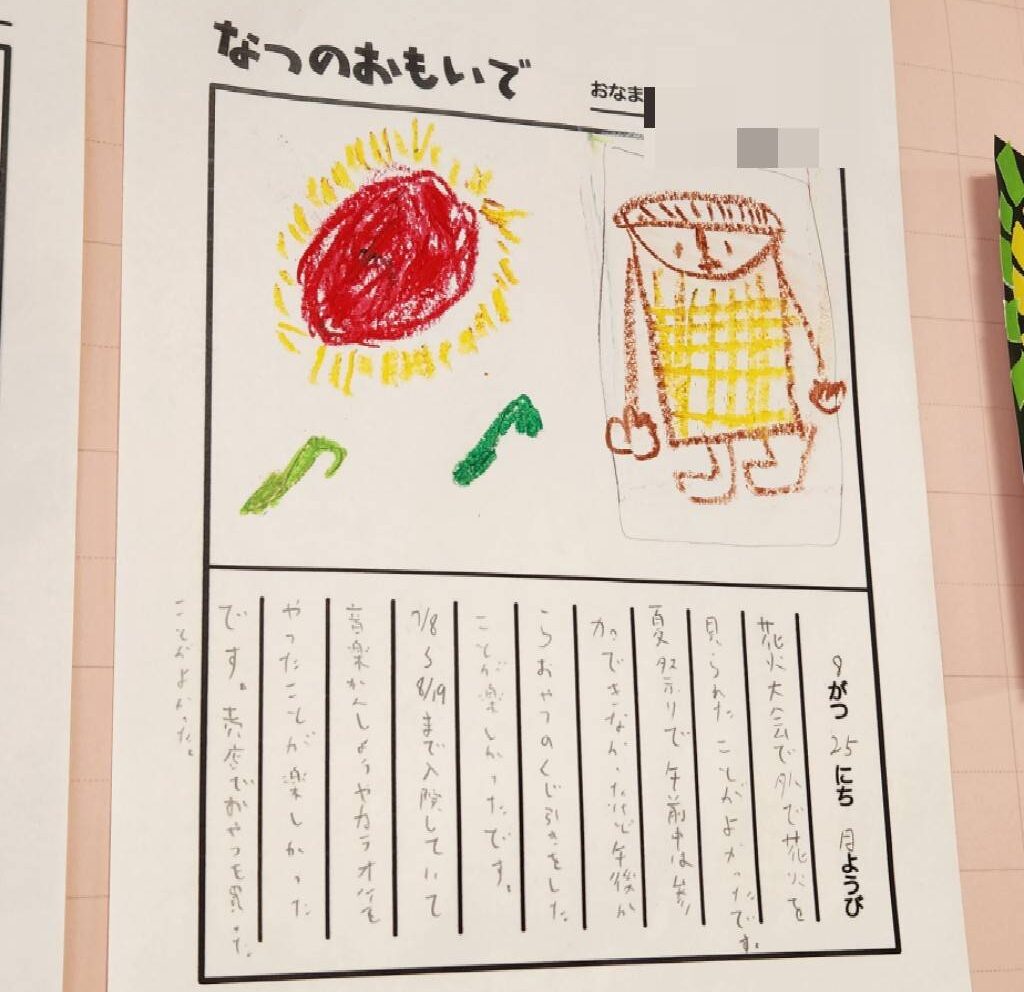 なつのおもいで
おなま
9がつ25にち月ようび
花火大会で外で花火を
見られたことがよかったです。
夏祭りで午前中は参
加できなかったけど午後か
らおやつのくじ引きをした
ことが楽しかったです。
7/8〜8/19まで入院していて
音楽かんしょうやカラオケを
やったことが楽しかった
です。売店でおやつを買った
ことがよかった。